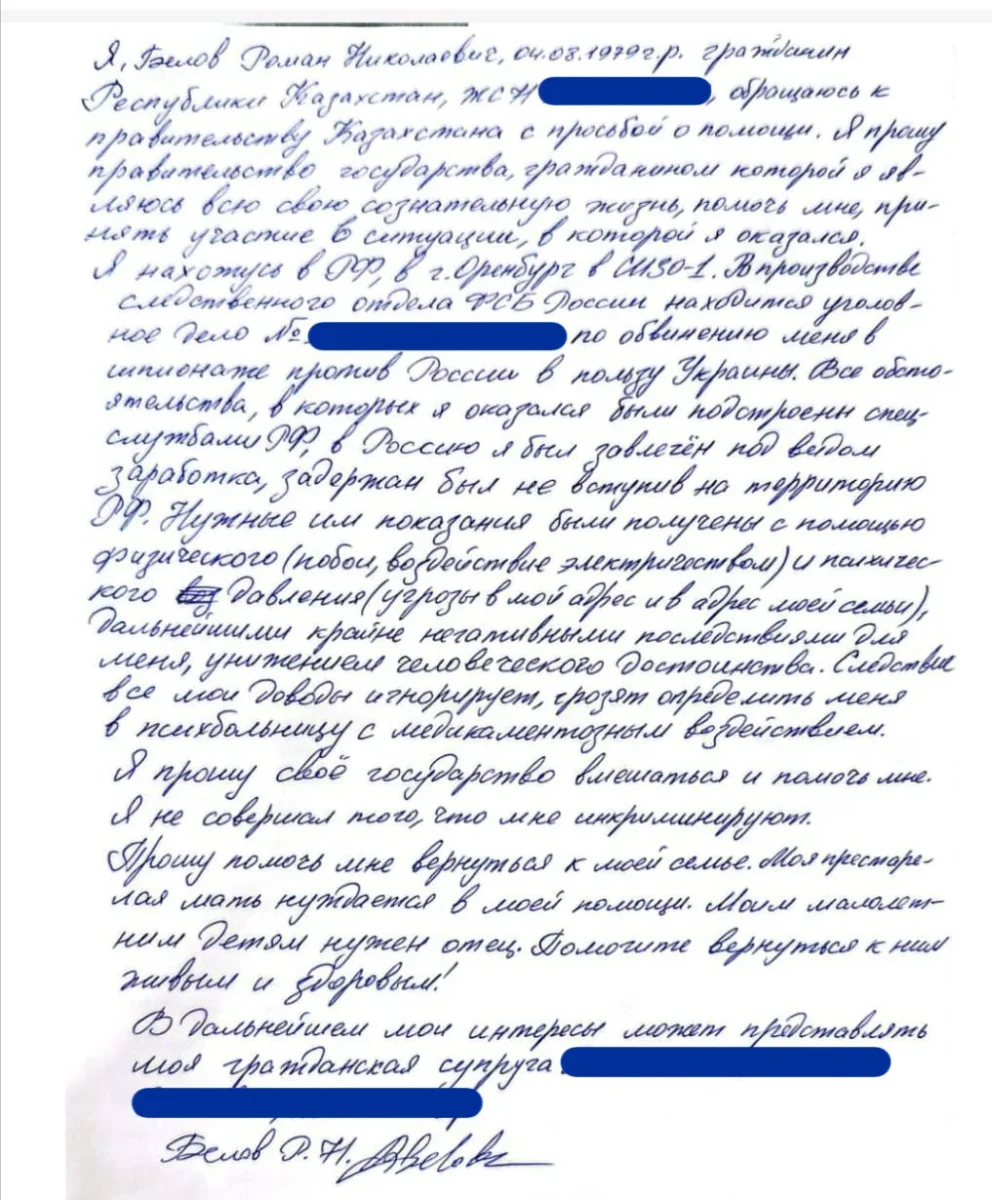 Я, Белов Роман Николаевич, 04.08.1979г.р. гражданин
Республики Казахстан, ЖСН , обращаюсь к
правительству Казахстана с просьбой о помощи. Я прошу
правительство государства, гражданином которой я яв-
ляюсь всю свою сознательную жизнь, помочь мне, при-
нять участие в ситуации, в которой я оказался.
Я нахожусь в РФ, в г.Оренбург в СИЗО-1. В производстве
следственного отдела ФСБ России находится уголов-
ное дело № по обвинению меня в
шпионаже против России в пользу Украины. Все обсто-
ятельства, в которых я оказался были подстроены спец-
службами РФ, в Россию я был завлечён под видом
заработка, задержан был не вступив на территорию
РФ. Нужные им показания были получены с помощью
физического (побои, воздействие электричеством) и психичес-
кого давления (угрозы в мой адрес и в адрес моей семьи),
дальнейшими крайне негативными последствиями для
меня, унижением человеческого достоинства. Следствие
все мои доводы игнорирует, грозят определить меня
в психбольницу с медикаментозным воздействием.
Я прошу своё государство вмешаться и помочь мне.
Я не совершал того, что мне инкриминируют.
Прошу помочь мне вернуться к моей семье. Моя престаре-
лая мать нуждается в моей помощи. Моим малолет-
ним детям нужен отец. Помогите вернуться к ним
живым и здоровым!
В дальнейшем мои интересы может представлять
моя гражданская супруга
Белов Р. Н.